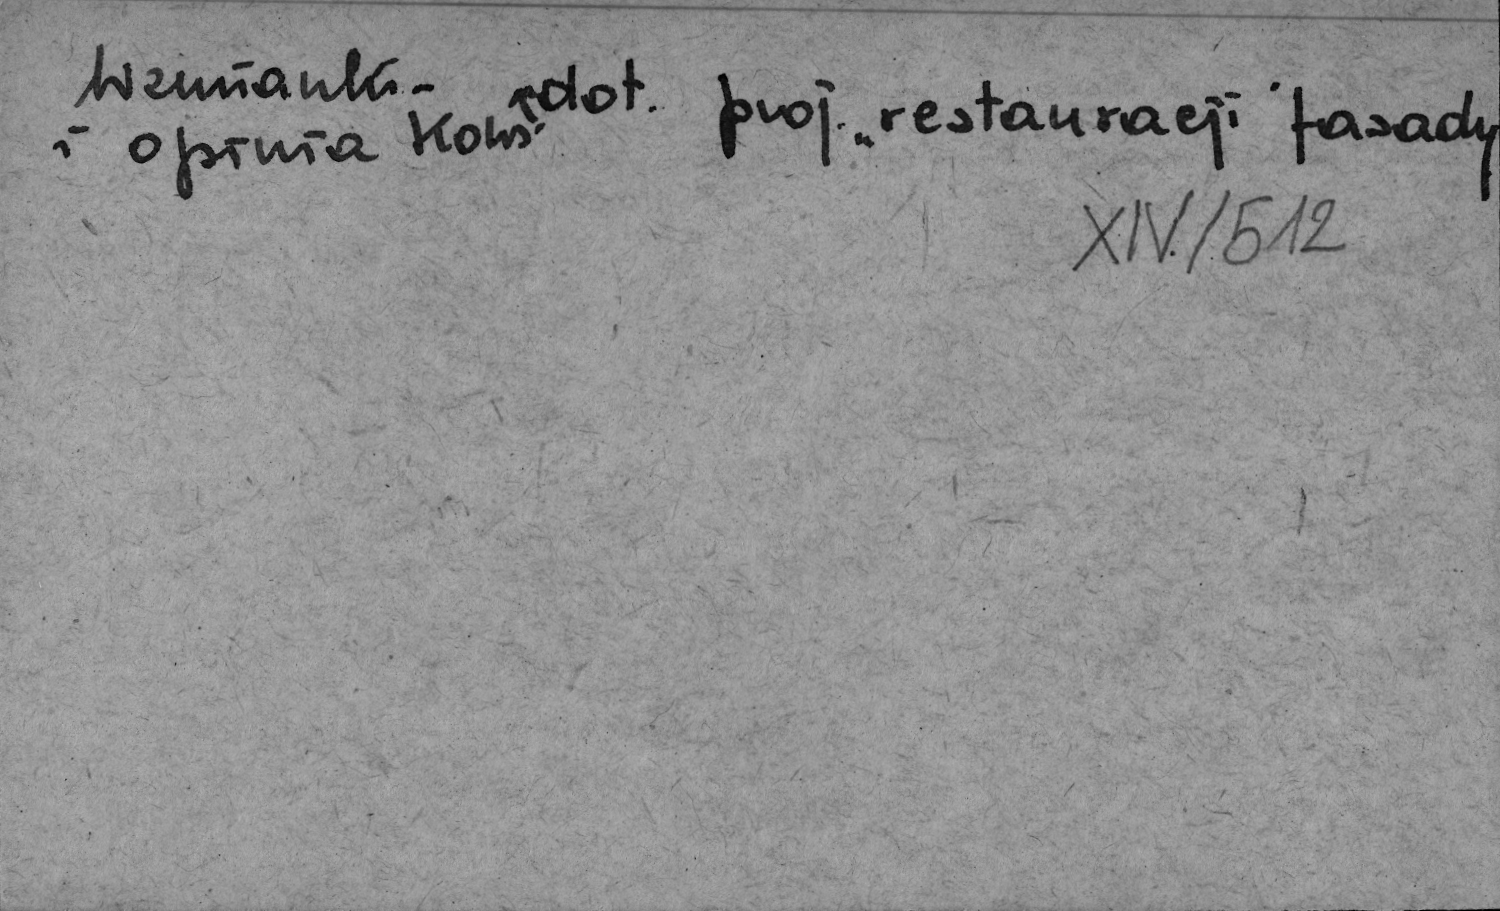 Wzmianki
i opinia Kons. dot. proj. „restauracji” fasady
XIV./512